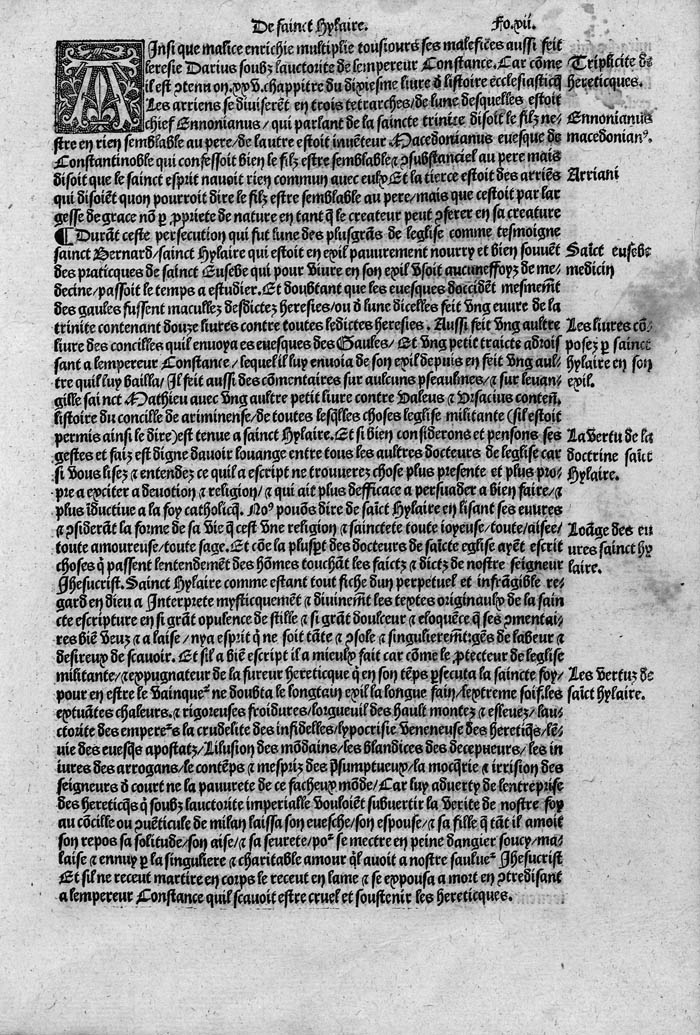 De sainct Hylaire. Fo.xii.
AInsi que malice enrichie multiplie tousiours ses malefices aussi feit
leresie Darius soubz lauctorite de lempereur Constance. Car cõme
il est ɔtenu on .xxv. chappitre du dixiesme liure d̃ listoire ecclesiasticq̃
Les arriens se diuiserẽt en trois tetrarches/de lune desquelles estoit
chief Ennonianus/qui parlant de la saincte trinite disoit le filz ne-
stre en rien semblable au pere/de lautre estoit inuẽteur Macedonianus euesque de
Constantinoble qui confessoit bien le filz estre semblable ⁊ ɔsubstanciel au pere mais
disoit que le sainct esprit nauoit rien commun auec eulx Et la tierce estoit des arriẽs
qui disoiẽt quon pourroit dire le filz estre semblable au pere/mais que cestoit par lar
gesse de grace nõ p̱ ꝓpriete de nature en tant q̃ le createur peut ɔferer en sa creature
¶ Durãt ceste persecution qui fut lune des plusgrãs de leglise comme tesmoigne
sainct Bernard/sainct Hylaire qui estoit en exil pauurement nourry et bien souuẽt
des praticques de sainct Eusebe qui pour viure en son exil vsoit aucuneffoyz de me-
decine/passoit le temps a estudier. Et doubtant que les euesques doccidẽt mesmemẽt
des gaules fussent macullez desdictez heresies/ou d̃ lune dicelles feit vng euure de la
trinite contenant douze liures contre toutes lesdictes heresies. Aussi feit vng aultre
liure des concilles quil enuoya es euesques des Gaules/ Et vng petit traicte adrois
sant a lempereur Constance/lequel il luy enuoia de son exil depuis en feit vng aul-
tre quil luy bailla/ Il feit aussi des cõmentaires sur aulcuns pseaulmes/⁊ sur leuan-
gille sainct Mathieu auec vng aultre petit liure contre Valeus ⁊ Ursacius conteñ.
listoire du concille de ariminense/de toutes lesq̃lles choses leglise militante (sil estoit
permis ainsi le dire) est tenue a sainct Hylaire. Et si bien considerons et pensons ses
gestes et faiz est digne dauoir louange entre tous les aultres docteurs de leglise car
si vous lisez ⁊ entendez ce quil a escript ne trouuerez chose plus presente et plus pro-
pre a exciter a deuotion ⁊ religion/⁊ qui ait plus defficace a persuader a bien faire/⁊
plus iductiue a la foy catholicq̃. Noꝰ pouõs dire de saict Hylaire en lisant ses euures
⁊ ɔsiderãt la forme de sa vie q̃ cest vne religion ⁊ sainctete toute ioyeuse/toute aisee/
toute amoureuse/toute sage. Et cõe la pluspt des docteurs de saicte eglise ayẽt escrit
choses q̃ passent lentendemẽt des hõmes touchãt les faictz ⁊ dictz de nostre seigneur
Jhesucrist. Sainct Hylaire comme estant tout fiche dun perpetuel et infrãgible re-
gard en dieu a Interprete mysticquemẽt ⁊ diuinem̃t les textes originaulx de la sain
cte escripture en si grãt opulence de stille ⁊ si grãt doulceur ⁊ eloquẽce q̃ ses ɔmentai-
res biẽ veuz ⁊ a laise/nya esprit q̃ ne soit tãte ⁊ ɔsole ⁊ singulierem̃t:gẽs de labeur ⁊
desireux de scauoir. Et sil a biẽ escript il a mieulx fait car cõme le ꝓtecteur de leglise
militante/⁊ expugnateur de la fureur hereticque q̃ en son tẽps p̱secuta la saincte foy/
pour en estre le vainqueʳ ne doubta le longtain exil la longue fain/lextreme soif.les
extuãtes chaleurs.⁊ rigoreuses froidures/lorgueil des hault montez ⁊ esleuez/lau-
ctorite des empereʳs la crudelite des infidelles/lypocrisie veneneuse des heretiq̃s/lẽ-
uie des euesq̃s apostatz/Lilusion des mõdains/les blandices des decepueurs/les in
iures des arrogans/le contẽps ⁊ mespriz des p̃sumptueux/la mocq̃rie ⁊ irrision des
seigneurs d̃ court ne la pauurete de ce facheux mõde/Car luy aduerty de lentreprise
des hereticq̃s q̃ soubz lauctorite imperialle vouloiẽt subuertir la verite de nostre foy
au cõcille ou ɔuẽticule de milan laissa son euesche/son espouse/⁊ sa fille q̃ tãt il amoit
son repos sa solitude/son aise/⁊ sa seurete/poʳ se mectre en peine dangier soucy/ma-
laise ⁊ ennuy p̱ la singuliere ⁊ charitable amour q̃l auoit a nostre saulueʳ Jhesucrist
Et sil ne receut martire en corps le receut en lame ⁊ se expousa a mort en ɔtredisant
a lempereur Constance quil scauoit estre cruel et soustenir les hereticques.
Triplicite de
hereticques.
Ennonianus
macedonianꝰ.
Arriani
Saict eusebe
medicin
Les liures cõ-
posez p̱ sainct
hylaire en son
exil.
La vertu de la
doctrine saict
Hylaire.
Loãge des eu
ures sainct hy
laire.
Les vertuz de
saict hylaire.